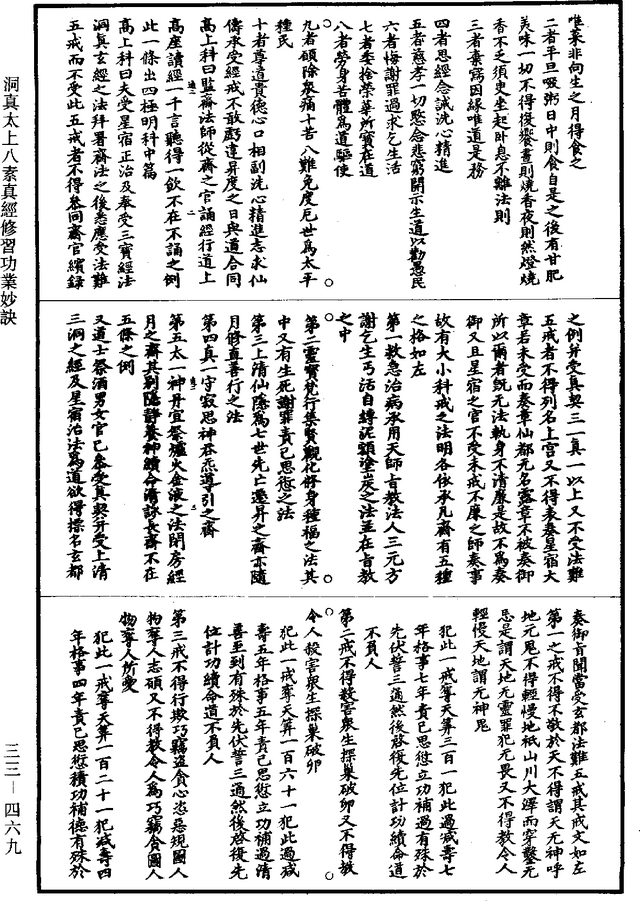 洞真太上八素真經修習功業妙訣
三三—四六九
唯菜非向生之月得食之
二者平旦吸粥日中則食自是之後有甘肥
美味一切不得復饗晝則燒香夜則然燈燒
香不乏須臾坐起卧息不離法則
三者棄寫因緣唯道是務
四者思經念誡洗心精進
五者慈孝一切愍念悲窮開示生道以勸愚民
六者悔謝罪過求乞生活
七者委捨榮華所寶在道
八者勞身苦體為道驅使
九者願除衆痛十苦八難免度厄世為太平
種民
十者尊道貴德心口相副洗心精進志求仙
儔承受經戒不敢虧違昇度之日與道合同
高上科曰監齋法師從齋之官誦經行道上
高座讀經一千言聽得一飲不在不誦之例
此一條出四極明科中篇
高上科曰夫受星宿正治及奉受三寶經法
洞真玄經之法拜署齋法之後悉應受法難
五戒而不受此五戒者不得參同齋官繽録
之例并受真契三一真一以上又不受法難
五戒者不得列名上宫又不得表奏星宿大
章若未受而奏章仙都无名靈章不被奏御
所以爾者既无法執身不清廉是故不為奏
御又且星宿之官不受未戒不廉之師奏事
故有大小科戒之法明各依承凡齋有五種
之格如左
第一救急治病承用天師旨教法人三元方
謝乞生丐活自縛泥額塗炭之法並在旨教
之中
第二靈寶梵行集賢觀化修身種福之法其
中又有生死謝罪責己思愆之法
第三上清仙隱為七世先亡遷昇之齋亦隨
月修直善行之法
第四真一守寂思神吞炁導引之齋
第五太一神丹宣祭爐火金液之法閉房經
月之齋其别隱靜養神續命清詠長齋不在
五條之例
又道士祭酒男女官已參受真契并受上清
三洞之經及星宿治法為道欲得標名玄都
奏御旨聞當受玄都法難五戒其戒文如左
第一之戒不得不敬於天不得謂天无神呼
地无鬼不得輕慢地祇山川大澤而穿鑿无
忌是謂天地无靈罪犯无畏又不得教令人
輕慢天地謂无神鬼
犯此一戒奪天算三百一犯此過減壽七
年格事七年責己思愆立功補過有殊於
先伏誓三通然後啓復先位計功續命道
不負人
第二戒不得殺害衆生探巢破卵又不得教
令人殺害衆生探巢破卵
犯此一戒奪天算一百六十一犯此過減
壽五年格事五年責己思愆立功補過清
善至到有殊於先伏誓三通然後啓復先
位計功續命道不負人
第三戒不得行欺巧竊盗貪心恣惡規圖人
物奪人志願又不得教令人為巧竊貪圖人
物奪人所愛
犯此一戒奪天算一百二十一犯減壽四
年格事四年責己思愆積功補德有殊於